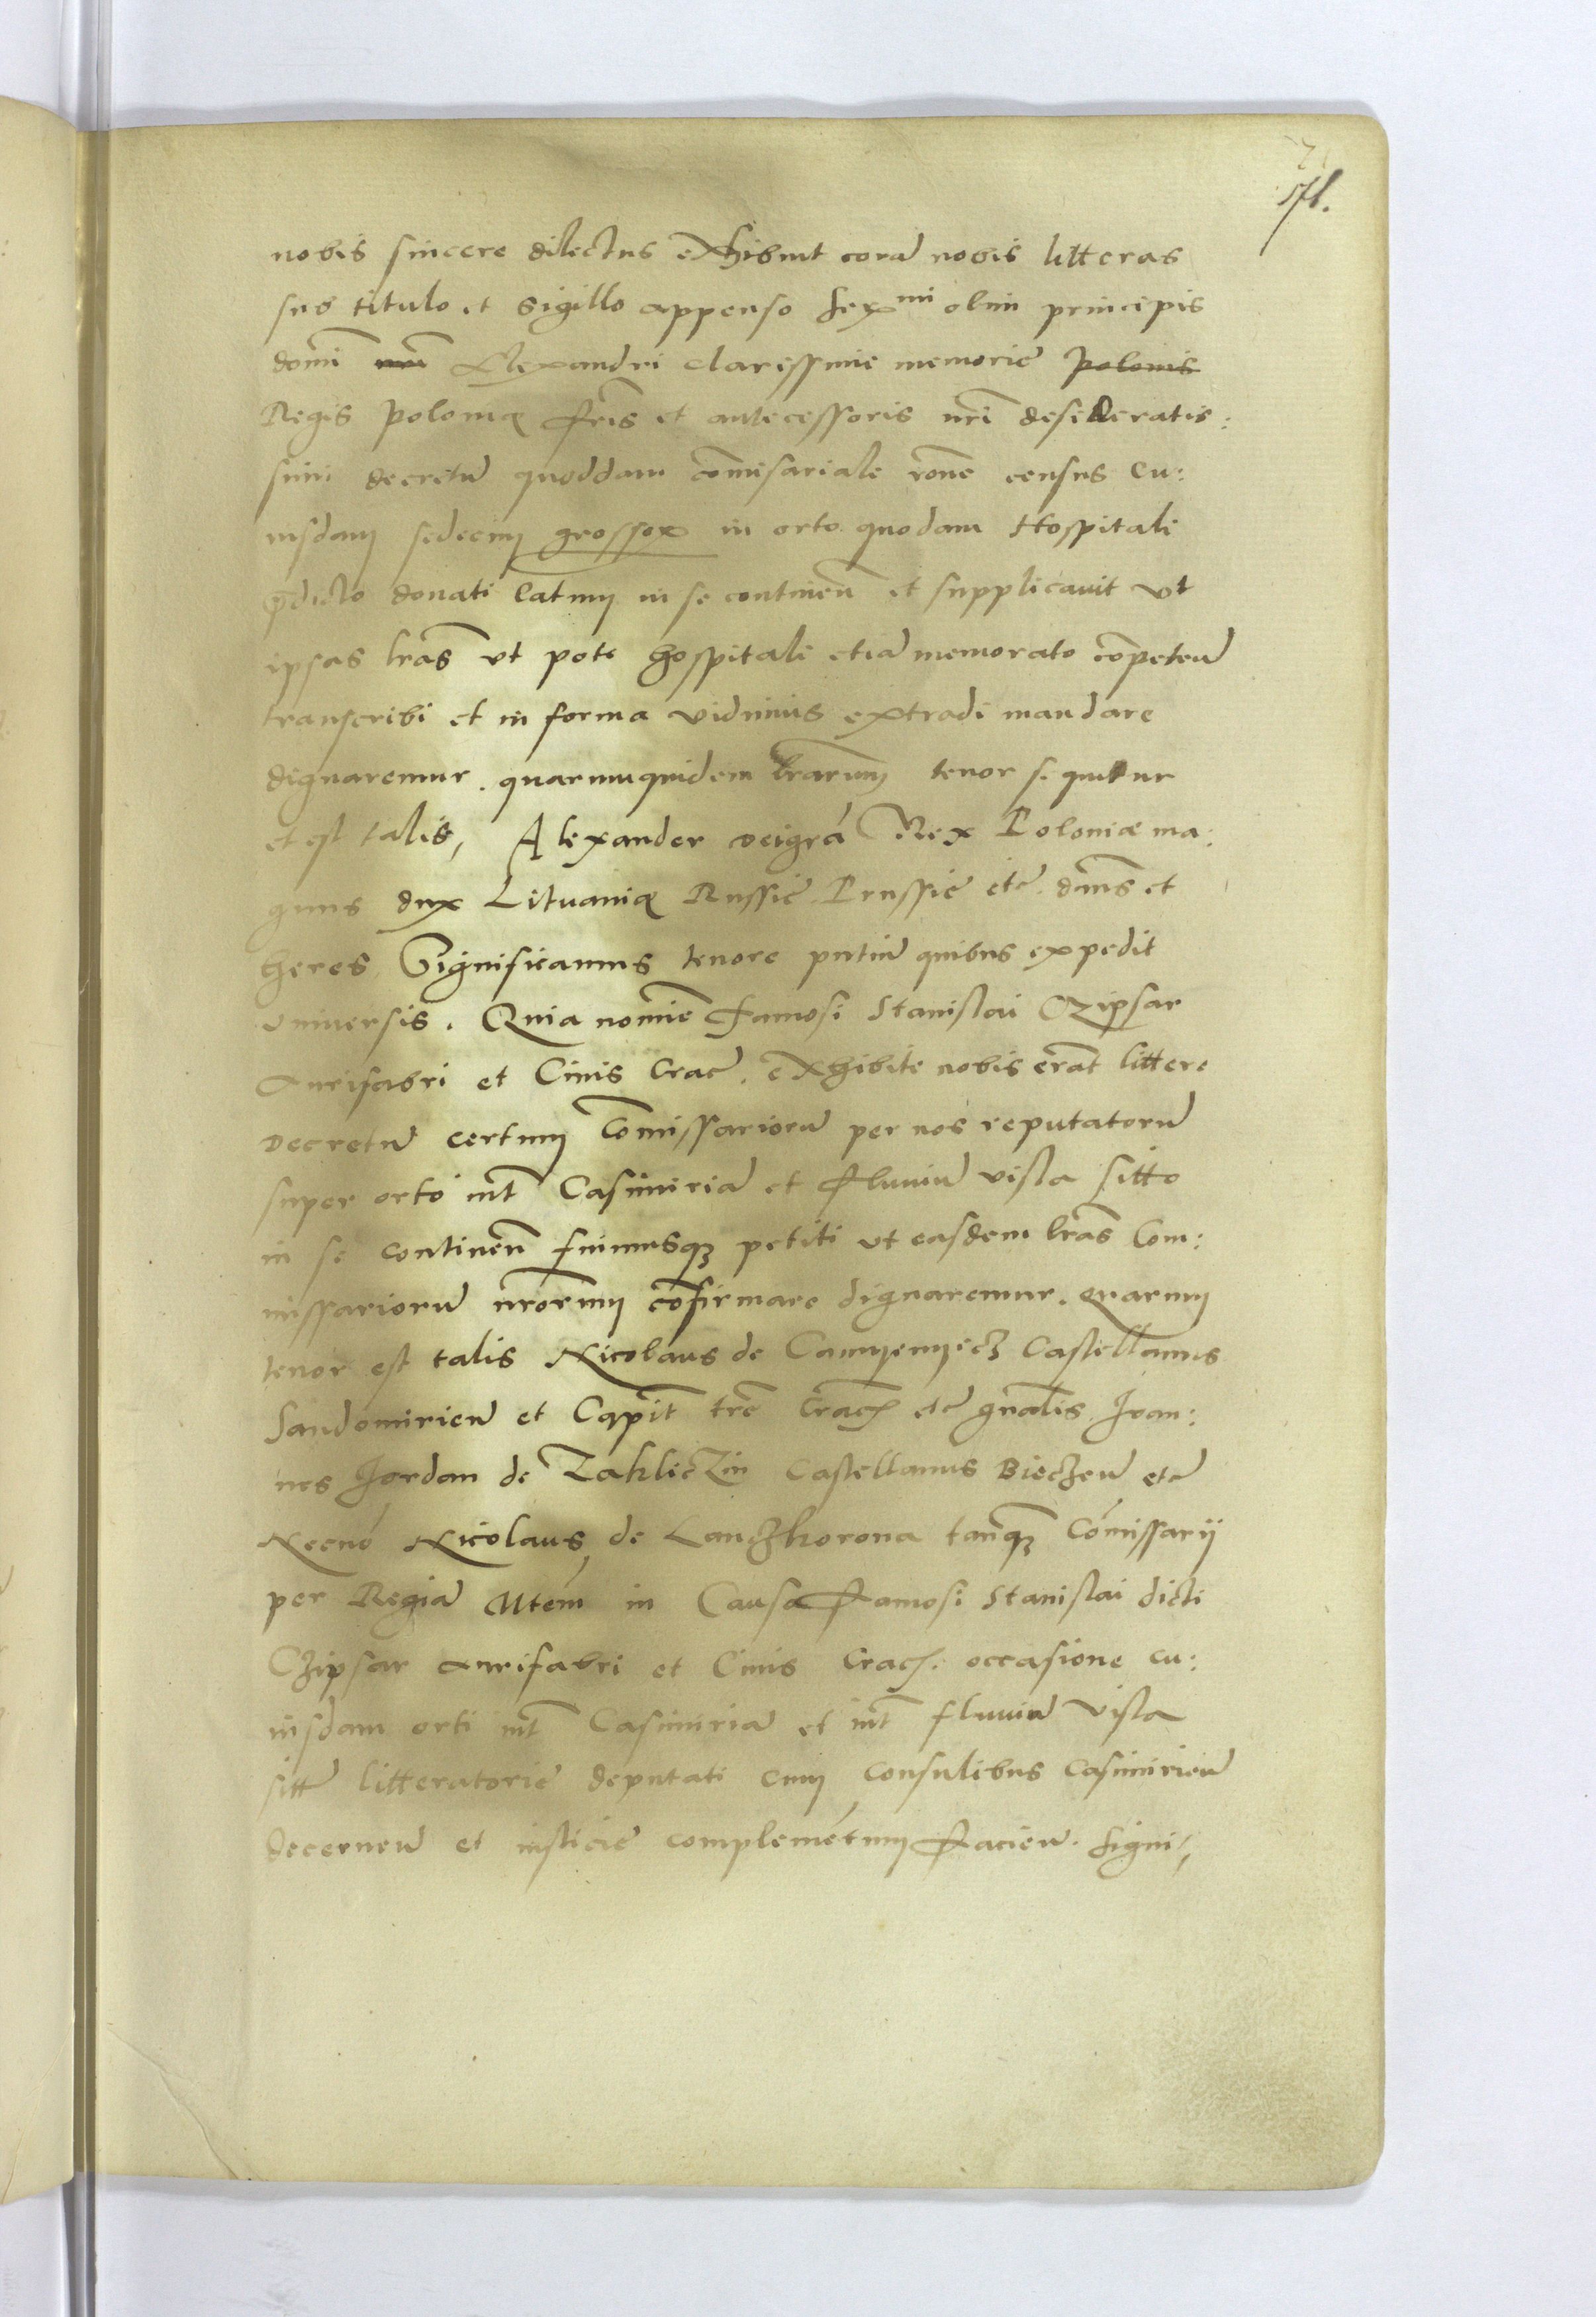 171.
nobis sincere dilectus exhibuit corā nobis litteras
sub titulo et sigillo appenso ser^mi olim principis
domī Alexandri clarissimie memorie polonis
Regis poloniæ frīs et antecessoris nrī desideratis:
simi decretū quoddam com̄isariale rōne census cu:
iusdam sedecim grossor in orto quodam Hospitali
p̄dicto donati latum in se continen̄ et supplicauit vt
ipsas lrās vt pote hospitali etiā memorato cōpeteñ
transcribi et in forma vidimus extradi mandare
dignaremur. quarumquidem lrarum tenor sequitur
et est talis, Alexander deigrā Rex Poloniæ ma:
gnus dux Lituaniæ Russie Prussie etc. dn̄s et
heres, Significamus tenore pn̄tiū quibus expedit
vniversis. Quia nomīe famosi Stanislai Czipsar
Aurifabri et Ciuis Crac̄. exhibite nobis erāt littere
Decretū certum Com̄issariorū per nos reputatorū
super orto int̄ Casimiriā et fluuiū visla sitto
in se continen̄ fuimusq₃ petiti vt easdem lrās Com:
missariorū nrōrum cōfirmare dignaremur. quarum
tenor est talis Nicolaus de Camyenyecz Castellanus
Sandomirieñ et Capit̄ tre Crac̄ etc gnālis Ioan:
nes Jordan de Zakliczin Castellanus Bieczeñ etc
Necnō Nicolaus de Lanczkorona tanq₃ Cōmissarij
per Regiā Mtem in Causa Famosi Stanislai dicti
Czipsar Aurifabri et Ciuis Crac̄. occasione cu:
iusdam orti int̄ Casimiriā et int̄ fluuiū Visla
sitt̄ litteratorie deputati cum consulibus Casimirieñ
decerneñ et iusticie complemētum Facieñ. signi,